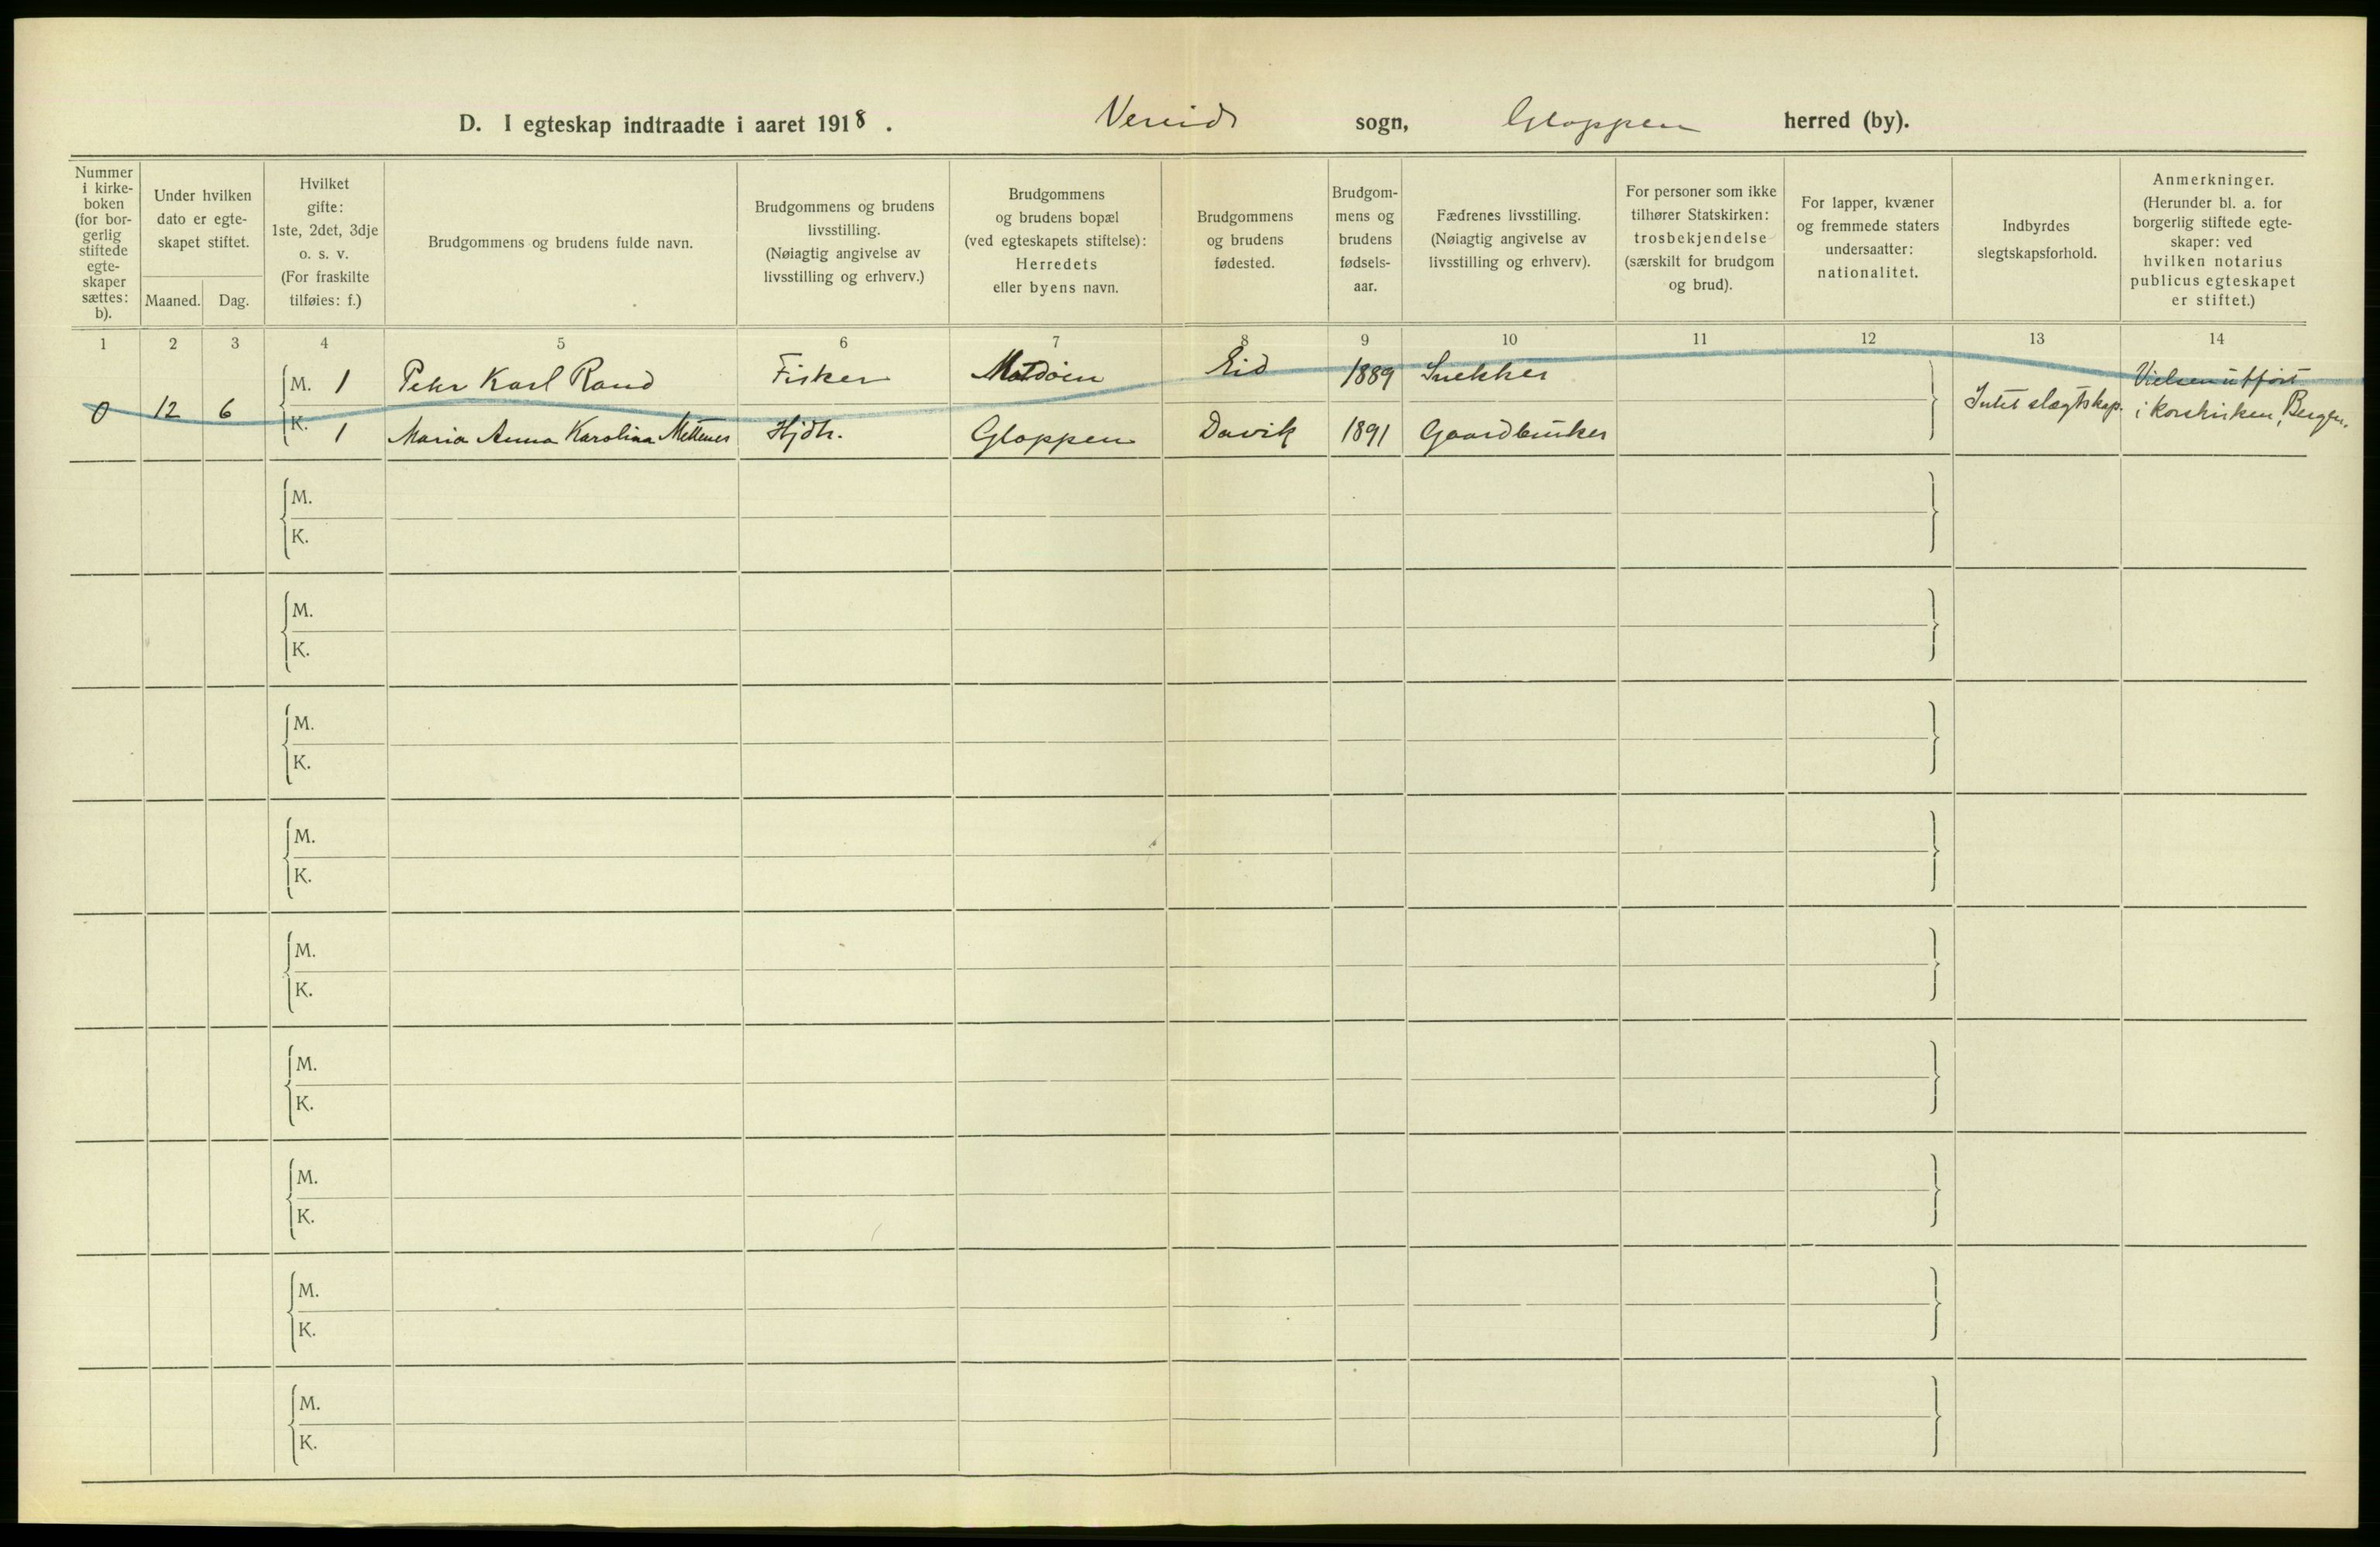 D. I egteskap indtraadte i aaret 1918. Vereide sogn, Gloppen herred (by).
Nummer i kirke- boken (for bor- gerlig stiftede egte- skaper sættes: b).
Under hvilken dato er egte- skapet stiftet.
Maaned. Dag.
Hvilket gifte: 1ste, 2det, 3dje o. s. v. (For fraskilte tilføies: f.)
Brudgommens og brudens fulde navn.
Brudgommens og brudens livsstilling. (Nøiagtig angivelse av livsstilling og erhverv.)
Brudgommens og brudens bopæl (ved egteskapets stiftelse): Herredets eller byens navn.
Brudgommens og brudens fødested.
Brudgom- mens og brudens fødsels- aar.
Fædrenes livsstilling. (Nøiagtig angivelse av livsstilling og erhverv).
For personer som ikke tilhører Statskirken: trosbekjendelse (særskilt for brudgom og brud).
For lapper, kvæner og fremmede staters undersaatter: nationalitet.
Indbyrdes slegtskapsforhold.
Anmerkninger. (Herunder bl. a. for borgerlig stiftede egte- skaper: ved hvilken notarius publicus egteskapet er stiftet.)
1 2 3 4 5 6 7 8 9 10 11 12 13 14
M. 1 Peter Karl Rand Fisker Eid 1889 Snekker Vielsen utført
0 12 6 Intet slægtskap. i Korskirken, Bergen.
K. 1 Maria Anna Karolina Hjdtr. Gloppen Davik 1891 Gaardbruker
M.
K.
M.
K.
M.
K.
M.
K.
M.
K.
M.
K.
M.
K.
M.
K.
M.
K.